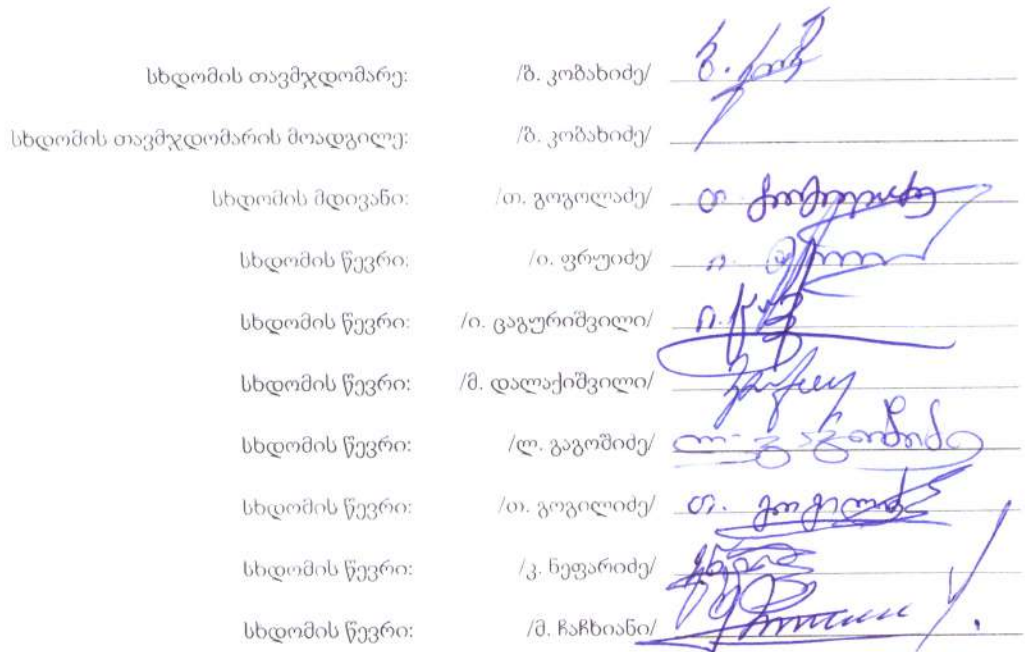 სხდომის თავმჯდომარე: /ზ. კობახიძე/
სხდომის თავმჯდომარის მოადგილე: /ზ. კობახიძე/
სხდომის მდივანი: /თ. გოგოლაძე/ თ. გოგოლაძე
სხდომის წევრი: /ი. ფრუიძე/
სხდომის წევრი: /ი. ცაგურიშვილი/
სხდომის წევრი: /მ. დალაქიშვილი/
სხდომის წევრი: /ლ. გაგოშიძე/ ლ. გაგოშიძე
სხდომის წევრი: /თ. გოგილიძე/ თ. გოგილიძე
სხდომის წევრი: /კ. ნეფარიძე/
სხდომის წევრი: /მ. ჩაჩხიანი/